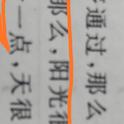 通过，那么
那么，阳光很
一点，天很